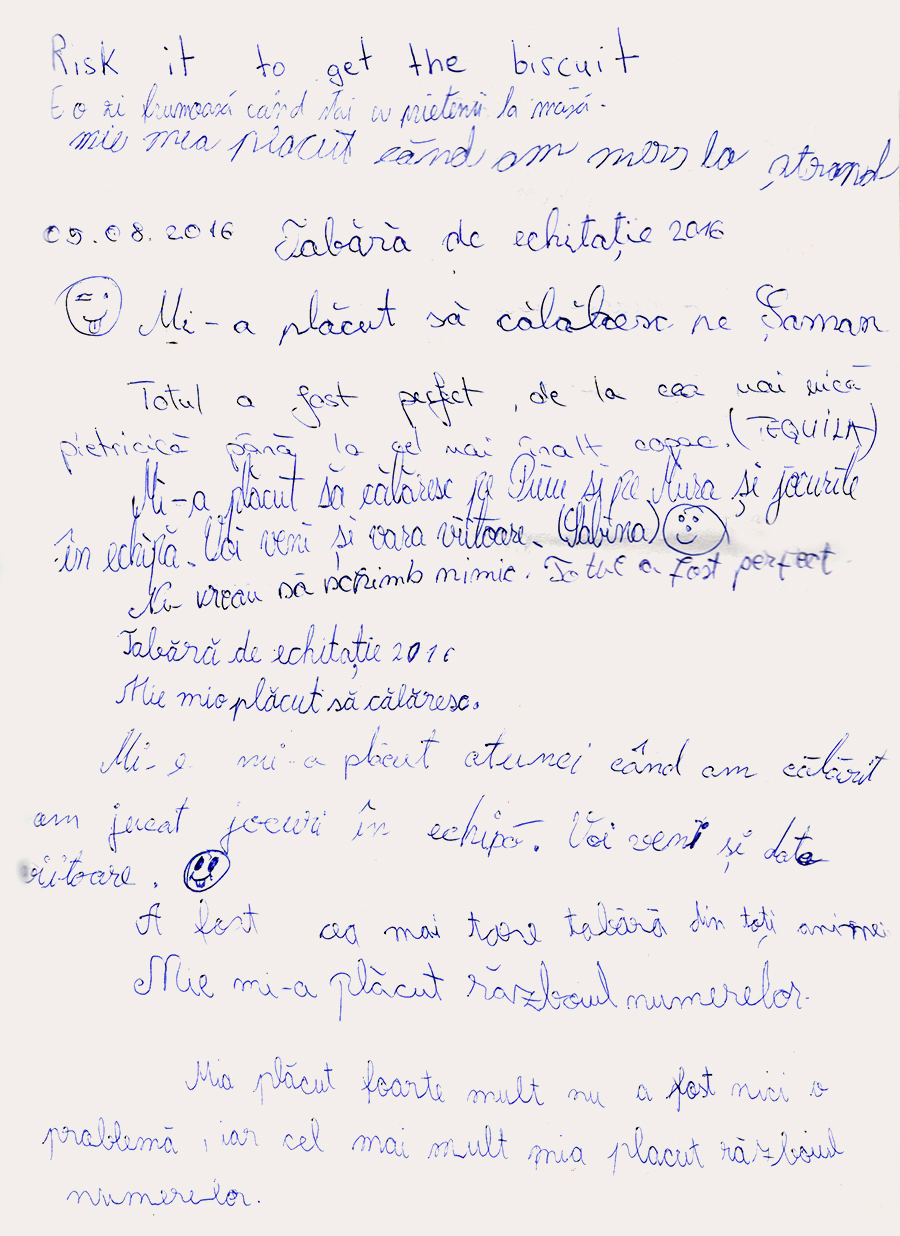 Risk it to get the biscuit
E o zi frumoasă când stai cu prietenii la masă.
mie mea placut când am mers la ștrand
09.08.2016 Tabără de echitație 2016
Mi-a plăcut să călăresc pe Șaman
Totul a fost perfect, de la cea mai mică
pietricică până la cel mai înalt copac. (TEQUILA)
Mi-a plăcut să călăresc pe și pe Aura și jocurile
în echipă. Voi veni și vara viitoare. (Sabina)
Nu vreau să schimb nimic. Totul a fost perfect
Tabără de echitație 2016
Mie mio plăcut să călăresc.
Mi-e mi-a plăcut atunci când am călărit
am jucat jocuri în echipă. Voi veni și data
viitoare.
A fost cea mai tare tabără din toți
Mie mi-a plăcut războiul numerelor.
Mia plăcut foarte mult nu a fost nici o
problemă, iar cel mai mult mia placut războiul
numerelor.